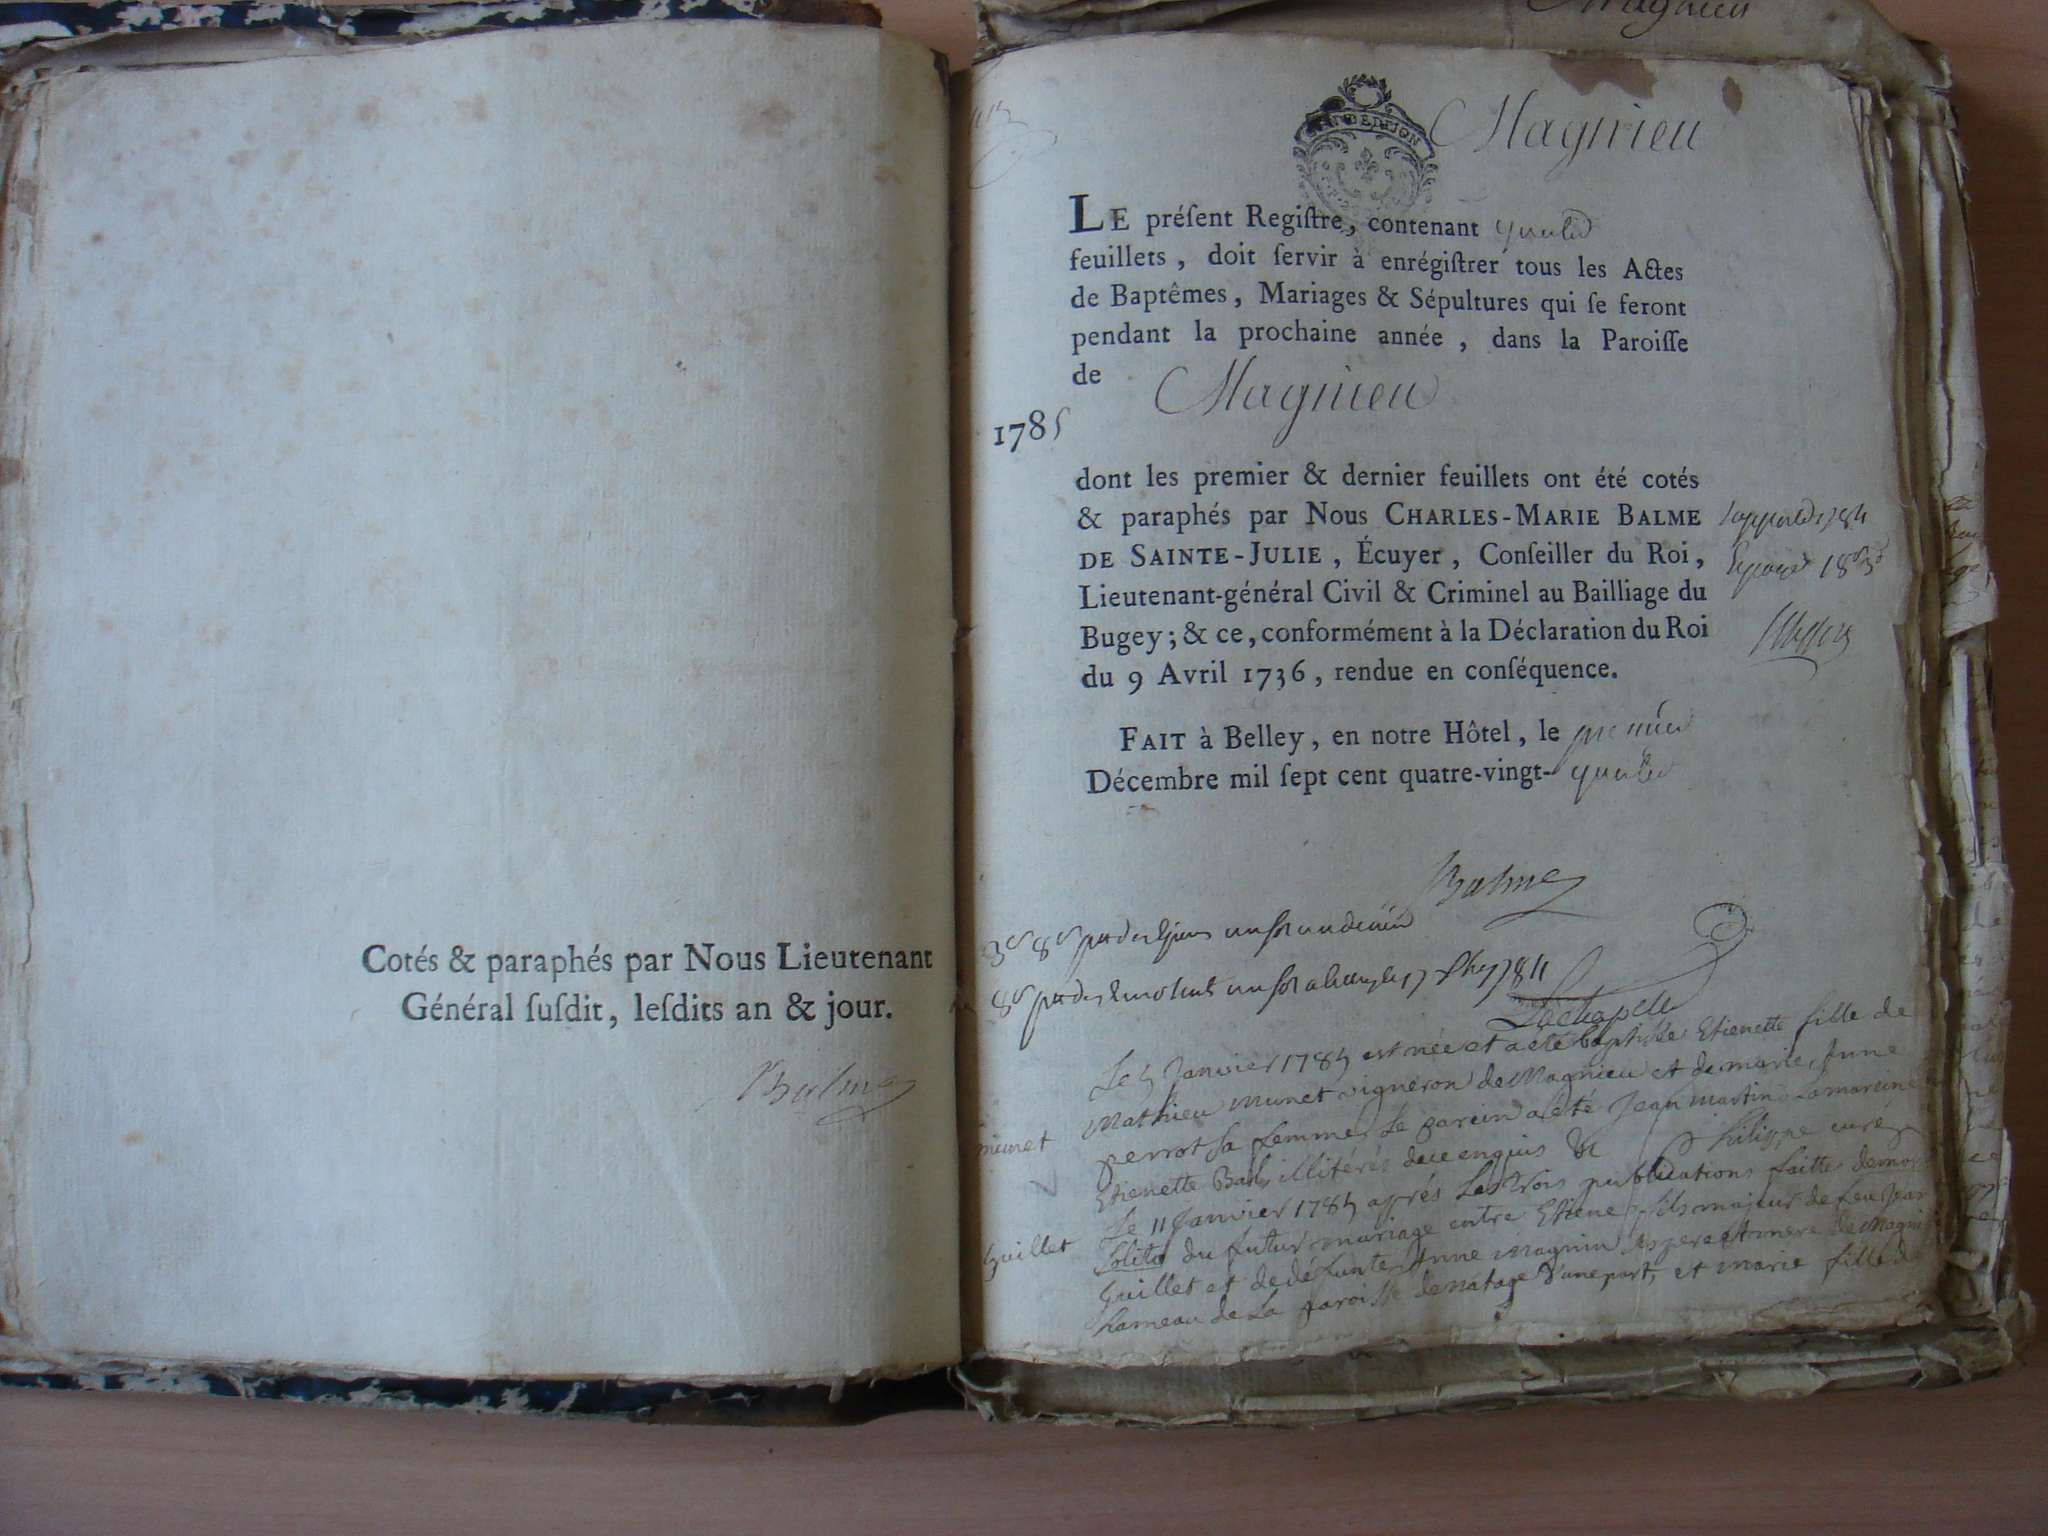 Cotés & paraphés par Nous Lieutenant
Général ſuſdit, leſdits an & jour.
Balme
Magnieu
Magnieu
LE préſent Regiſtre, contenant quatre
feuillets, doit ſervir à enrégiſtrer tous les Actes
de Baptêmes, Mariages & Sépultures qui ſe feront
pendant la prochaine année, dans la Paroiſſe
de Magnieu
1785
dont les premier & dernier feuillets ont été cotés
& paraphés par Nous CHARLES-MARIE BALME
DE SAINTE-JULIE, Écuyer, Conſeiller du Roi,
Lieutenant-général Civil & Criminel au Bailliage du
Bugey; & ce, conformément à la Déclaration du Roi
du 9 Avril 1736, rendue en conſéquence.
FAIT à Belley, en notre Hôtel, le premier
Décembre mil ſept cent quatre-vingt-quatre
Balme
Lachapelle
Le 5 Janvier 1785 est née et a été baptisée Etienette fille de
Mathieu munet vigneron de Magnieu et de marie Anne
munet
perrot sa femme, Le parein a été Jean martin Lamareine
Etienette illitérés de ce enquis Philippe curé
Le 11 Janvier 1785 après Les trois publications faittes
Guillet
Solito du futur mariage entre Etiene fils majeur de feu Jean
Guillet et de défunte Anne Magnin ses pere et mere de Magnieu
hameau de La paroisse de natage d'une part, et marie fille de